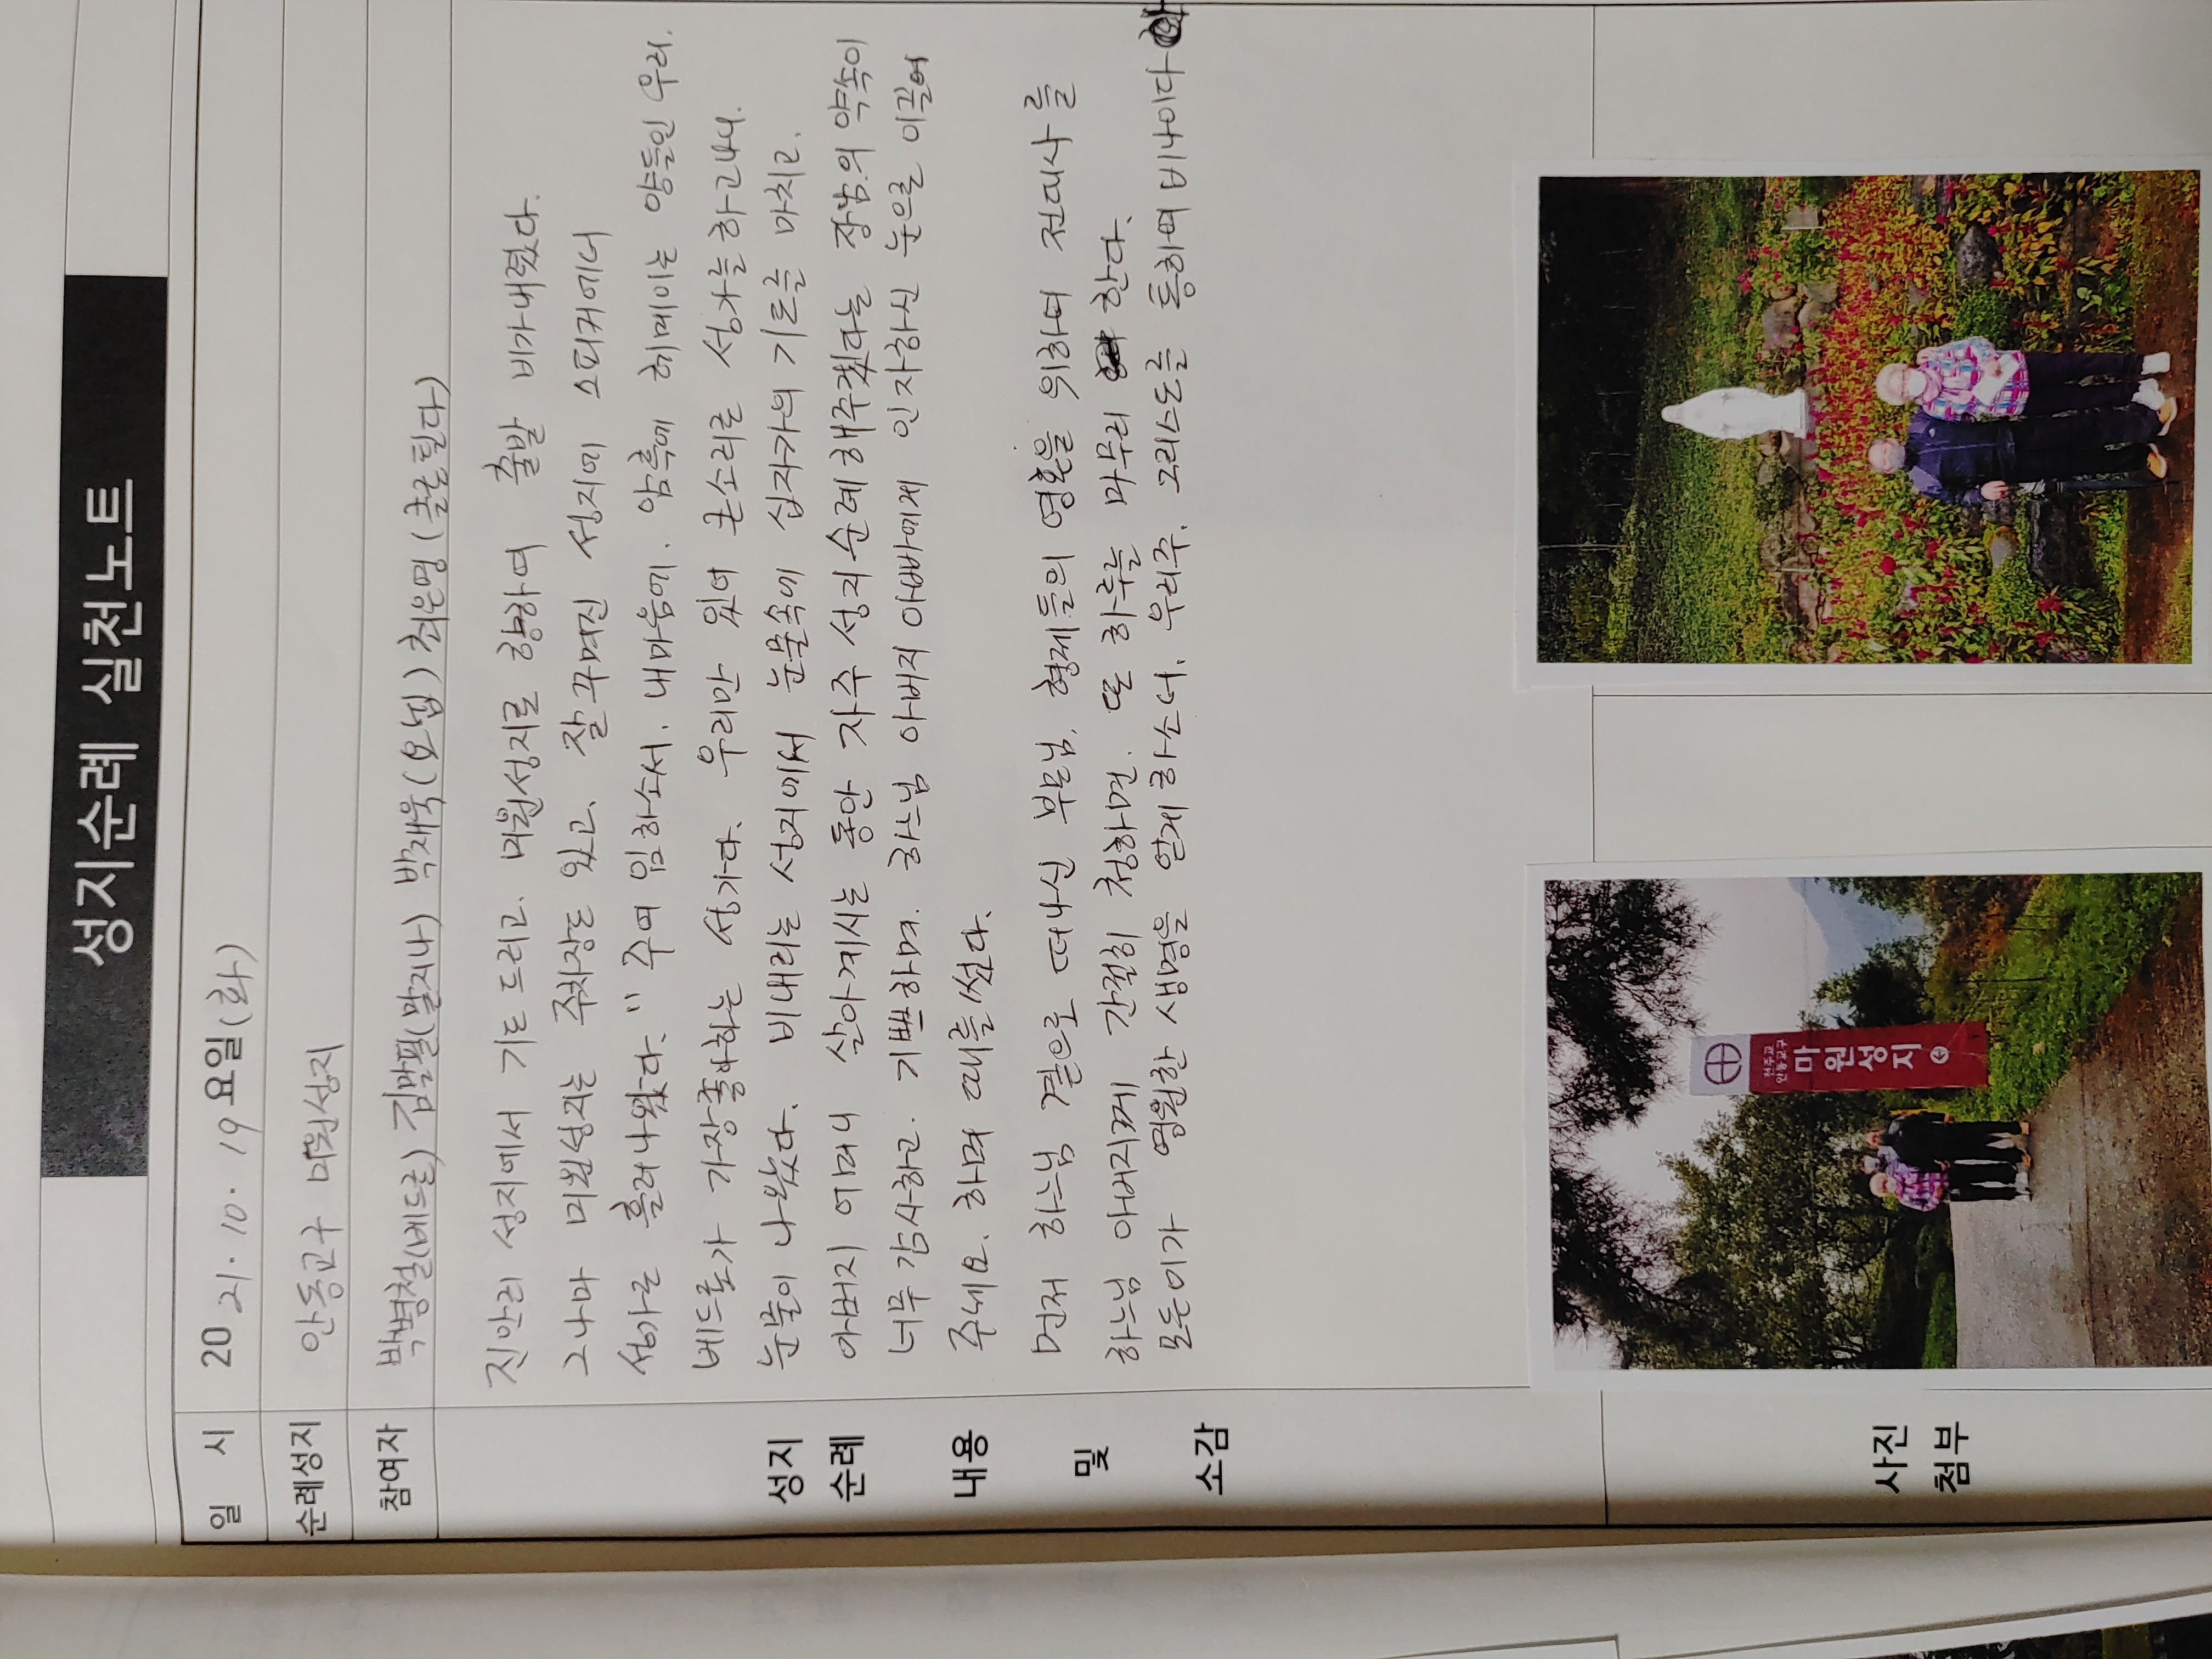 성지순례 실천노트
일 시 2021. 10. 19 요일(화)
순례성지 안동교구 마원성지
참여자 박병철(베드로) 김말필(말지나) 박재욱(요셉) 최은영(클로틸다)
진안리 성지에서 기도 드리고. 마원성지로 향하여 출발 비가내렸다.
그나마 마원성지는 주차장도 있고. 잘 꾸며진 성지에 스피커에서
성가로 흘러나왔다. " 주여 임하소서. 내마음에. 암흑에 헤메이는 양들인 우리.
베드로가 가장좋아하는 성가다. 우리만 있어 큰소리로 성가를 하고나니.
눈물이 나왔다. 비내리는 성지에서 눈물속에 십자가의 기도를 마치고.
아버지 어머니 살아계시는 동안 자주 성지순례해주겠다는 장남의 약속이
너무 감사하고. 기쁘하며. 하느님 아버지 아빠에게 인자하신 눈으로 이끌어
주세요. 하며 떼를썼다.
먼저 하느님 곁으로 떠나신 부모님. 형제들의 영혼을 위하여 전대사를
하느님 아버지께 간절히 청하면. 또 하루를 마무리 한다.
모든이가 영원한 생명을 얻게 하소서. 우리주. 그리스도를 통하여 비나이다
성지
순례
내용
및
소감
사진
첨부
천주교
안동교구
마원성지